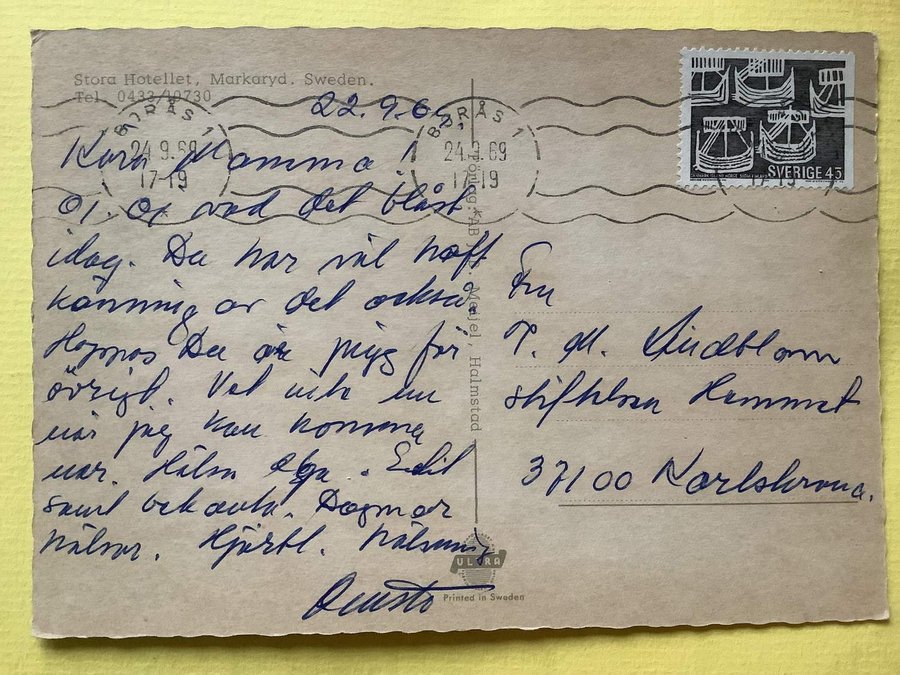 Stora Hotellet, Markaryd. Sweden.
Tel. 0433/10730
22.9.69
BORÅS 1
24.9.69
17-19
BORÅS 1
24.9.69
17-19
17-19
SVERIGE 45
Kära Mamma!
Oj. Oj vad det blåst
idag. Du har väl haft
känning av det också.
Hoppas Du är pigg för
övrigt. Vet inte nu
när jag kan komma
ner. Hälsa Olga. Edit
samt
Dagmar
hälsar. Hjärtl. hälsning
Fru
T. M. Lindblom
Stiftelsen Hemmet
37100 Karlskrona.
Förlag: AB
Medjel, Halmstad
ULTRA
Printed in Sweden